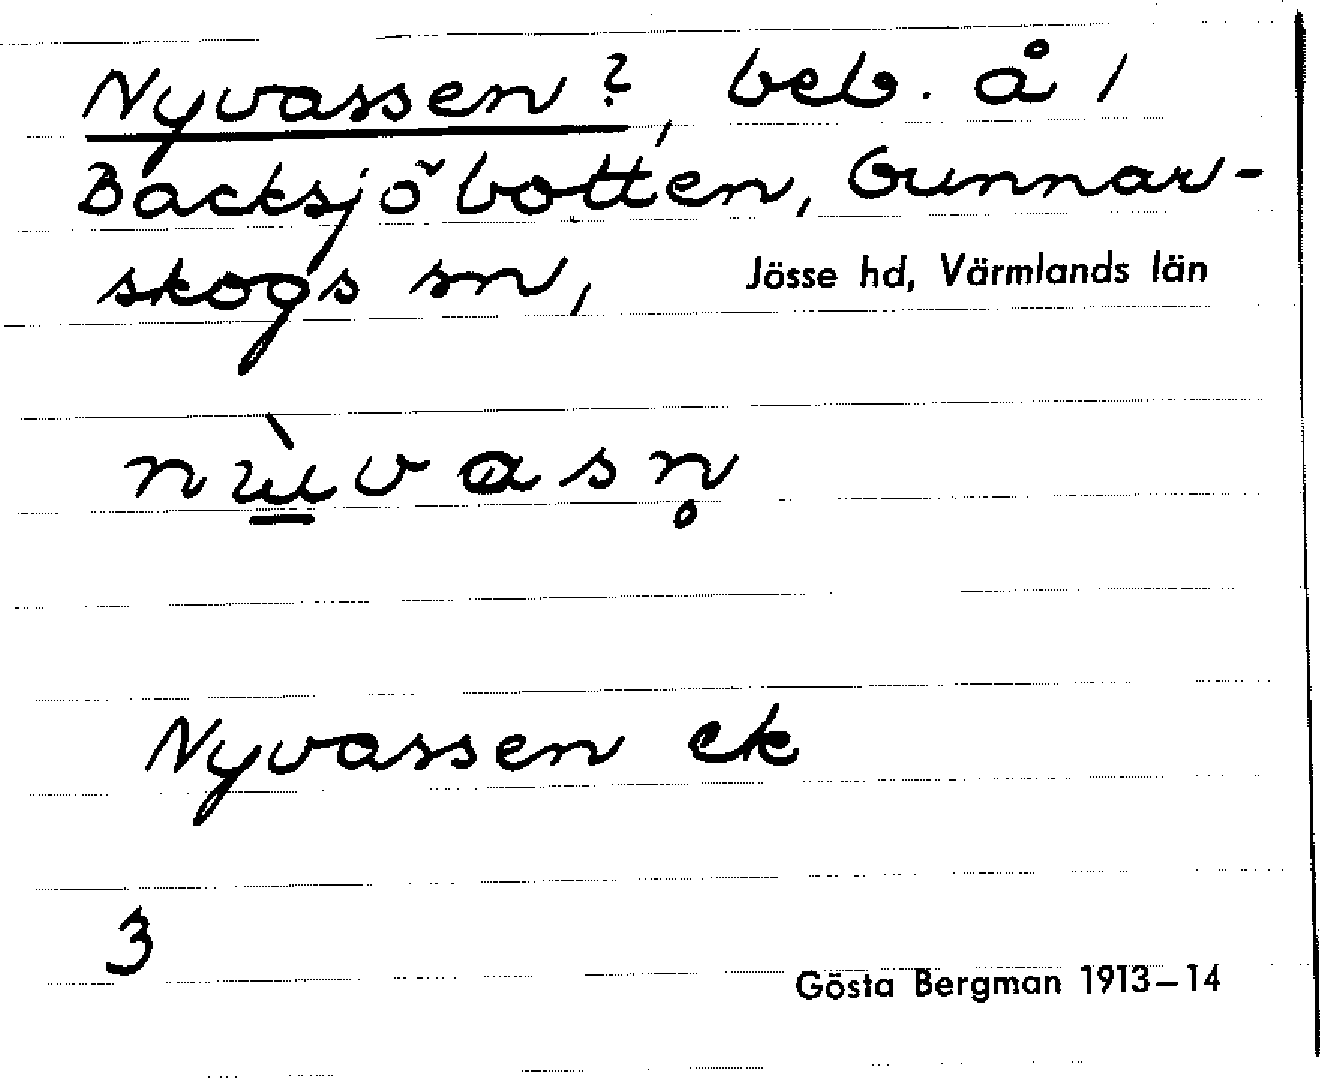 Nyvassen?, beb. å 1
Backsjöbotten, Gunnar-
skogs sn, Jösse hd, Värmlands län
Nyvassen ek
3
Gösta Bergman 1913–14